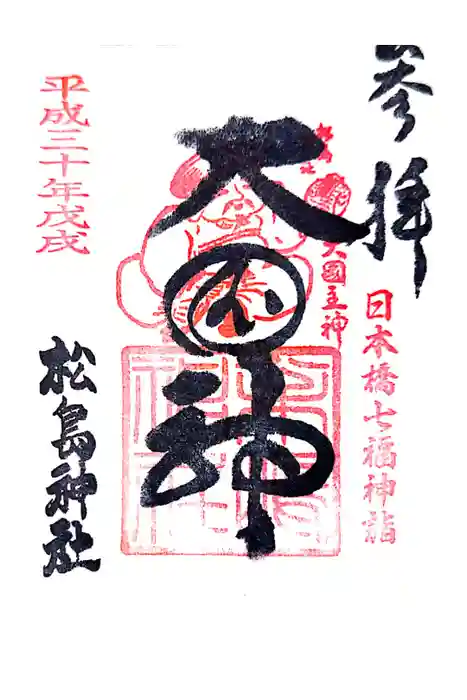 参拝
日本橋七福神詣
大国主神
大国神
平成三十年戊戌
松島神社